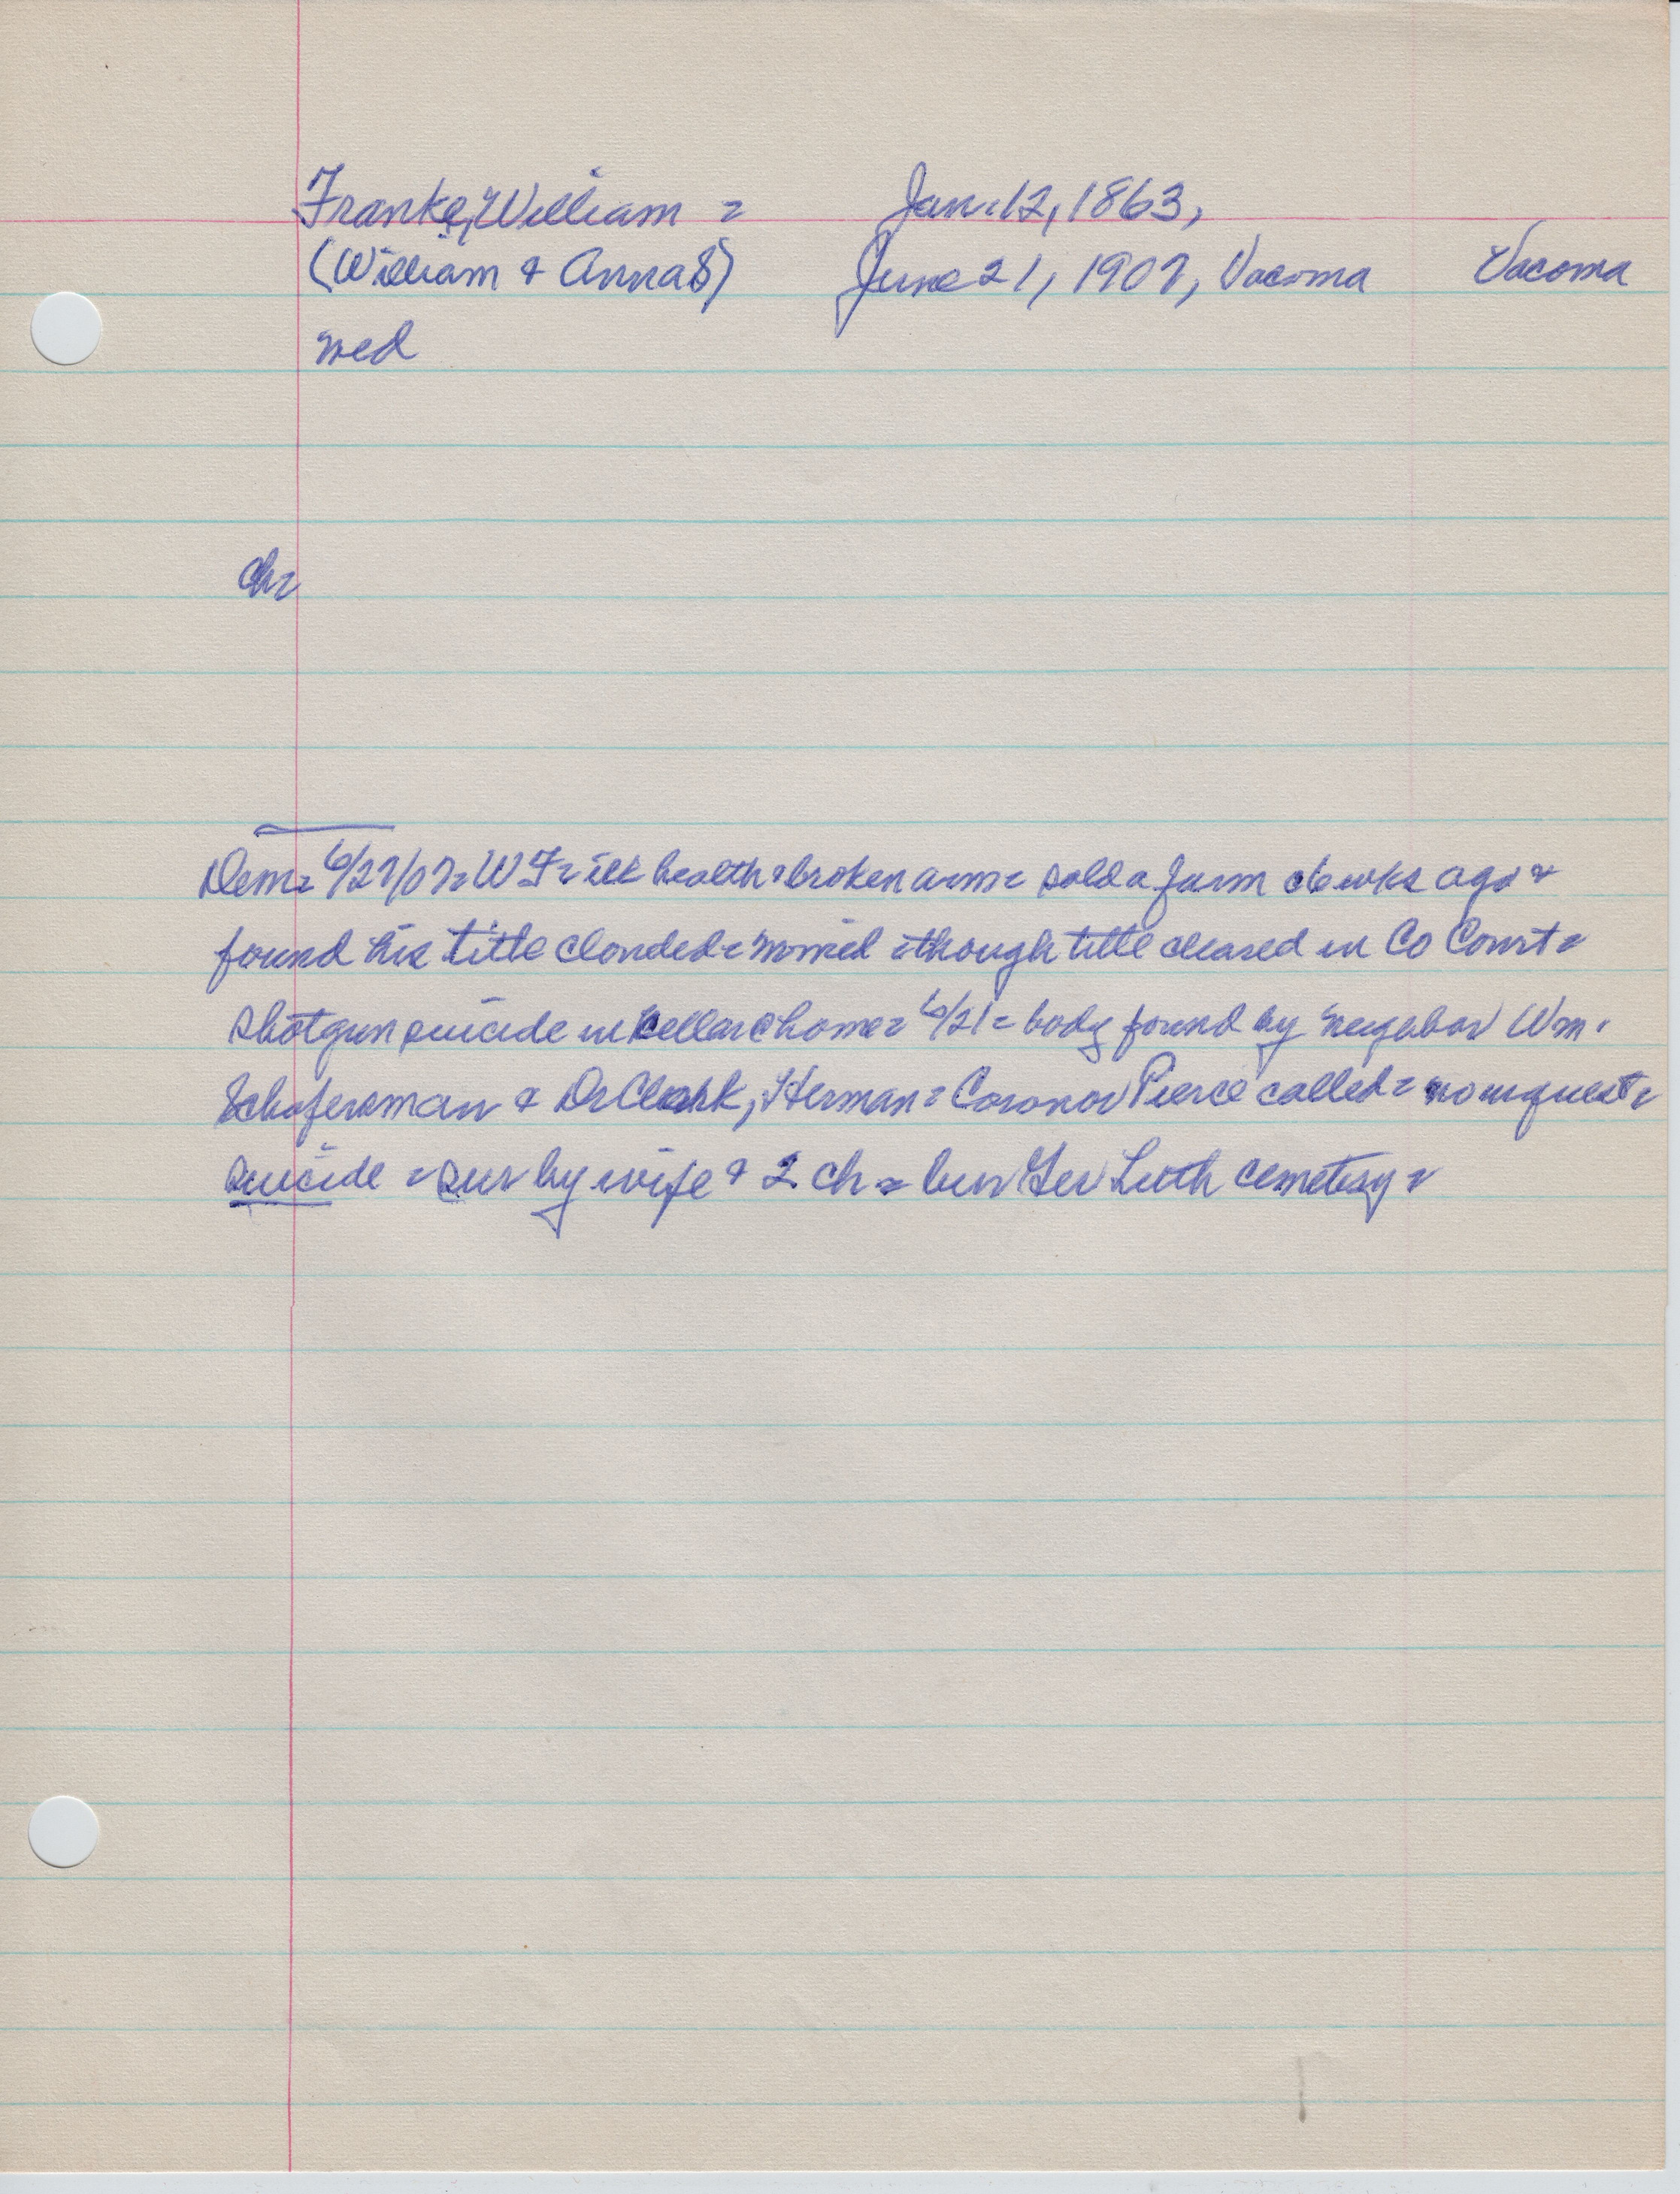 Franke, William = Jan. 12, 1863,
(William & Anna S) June 21, 1907, Vacoma Vacoma
med
ch=
Dem= 6/27/07= W F= ill health= broken arm= sold a farm 6 wks ago &
found his title clouded= though title cleared in Co Court=
shotgun suicide in cellar @ home= 6/21= body found by neighbor Wm.
Schafersman & Dr Clark, Herman= Coronor Pierce called= no inquest=
suicide = sur by wife & 2 ch = bur Ger Luth cemetery=